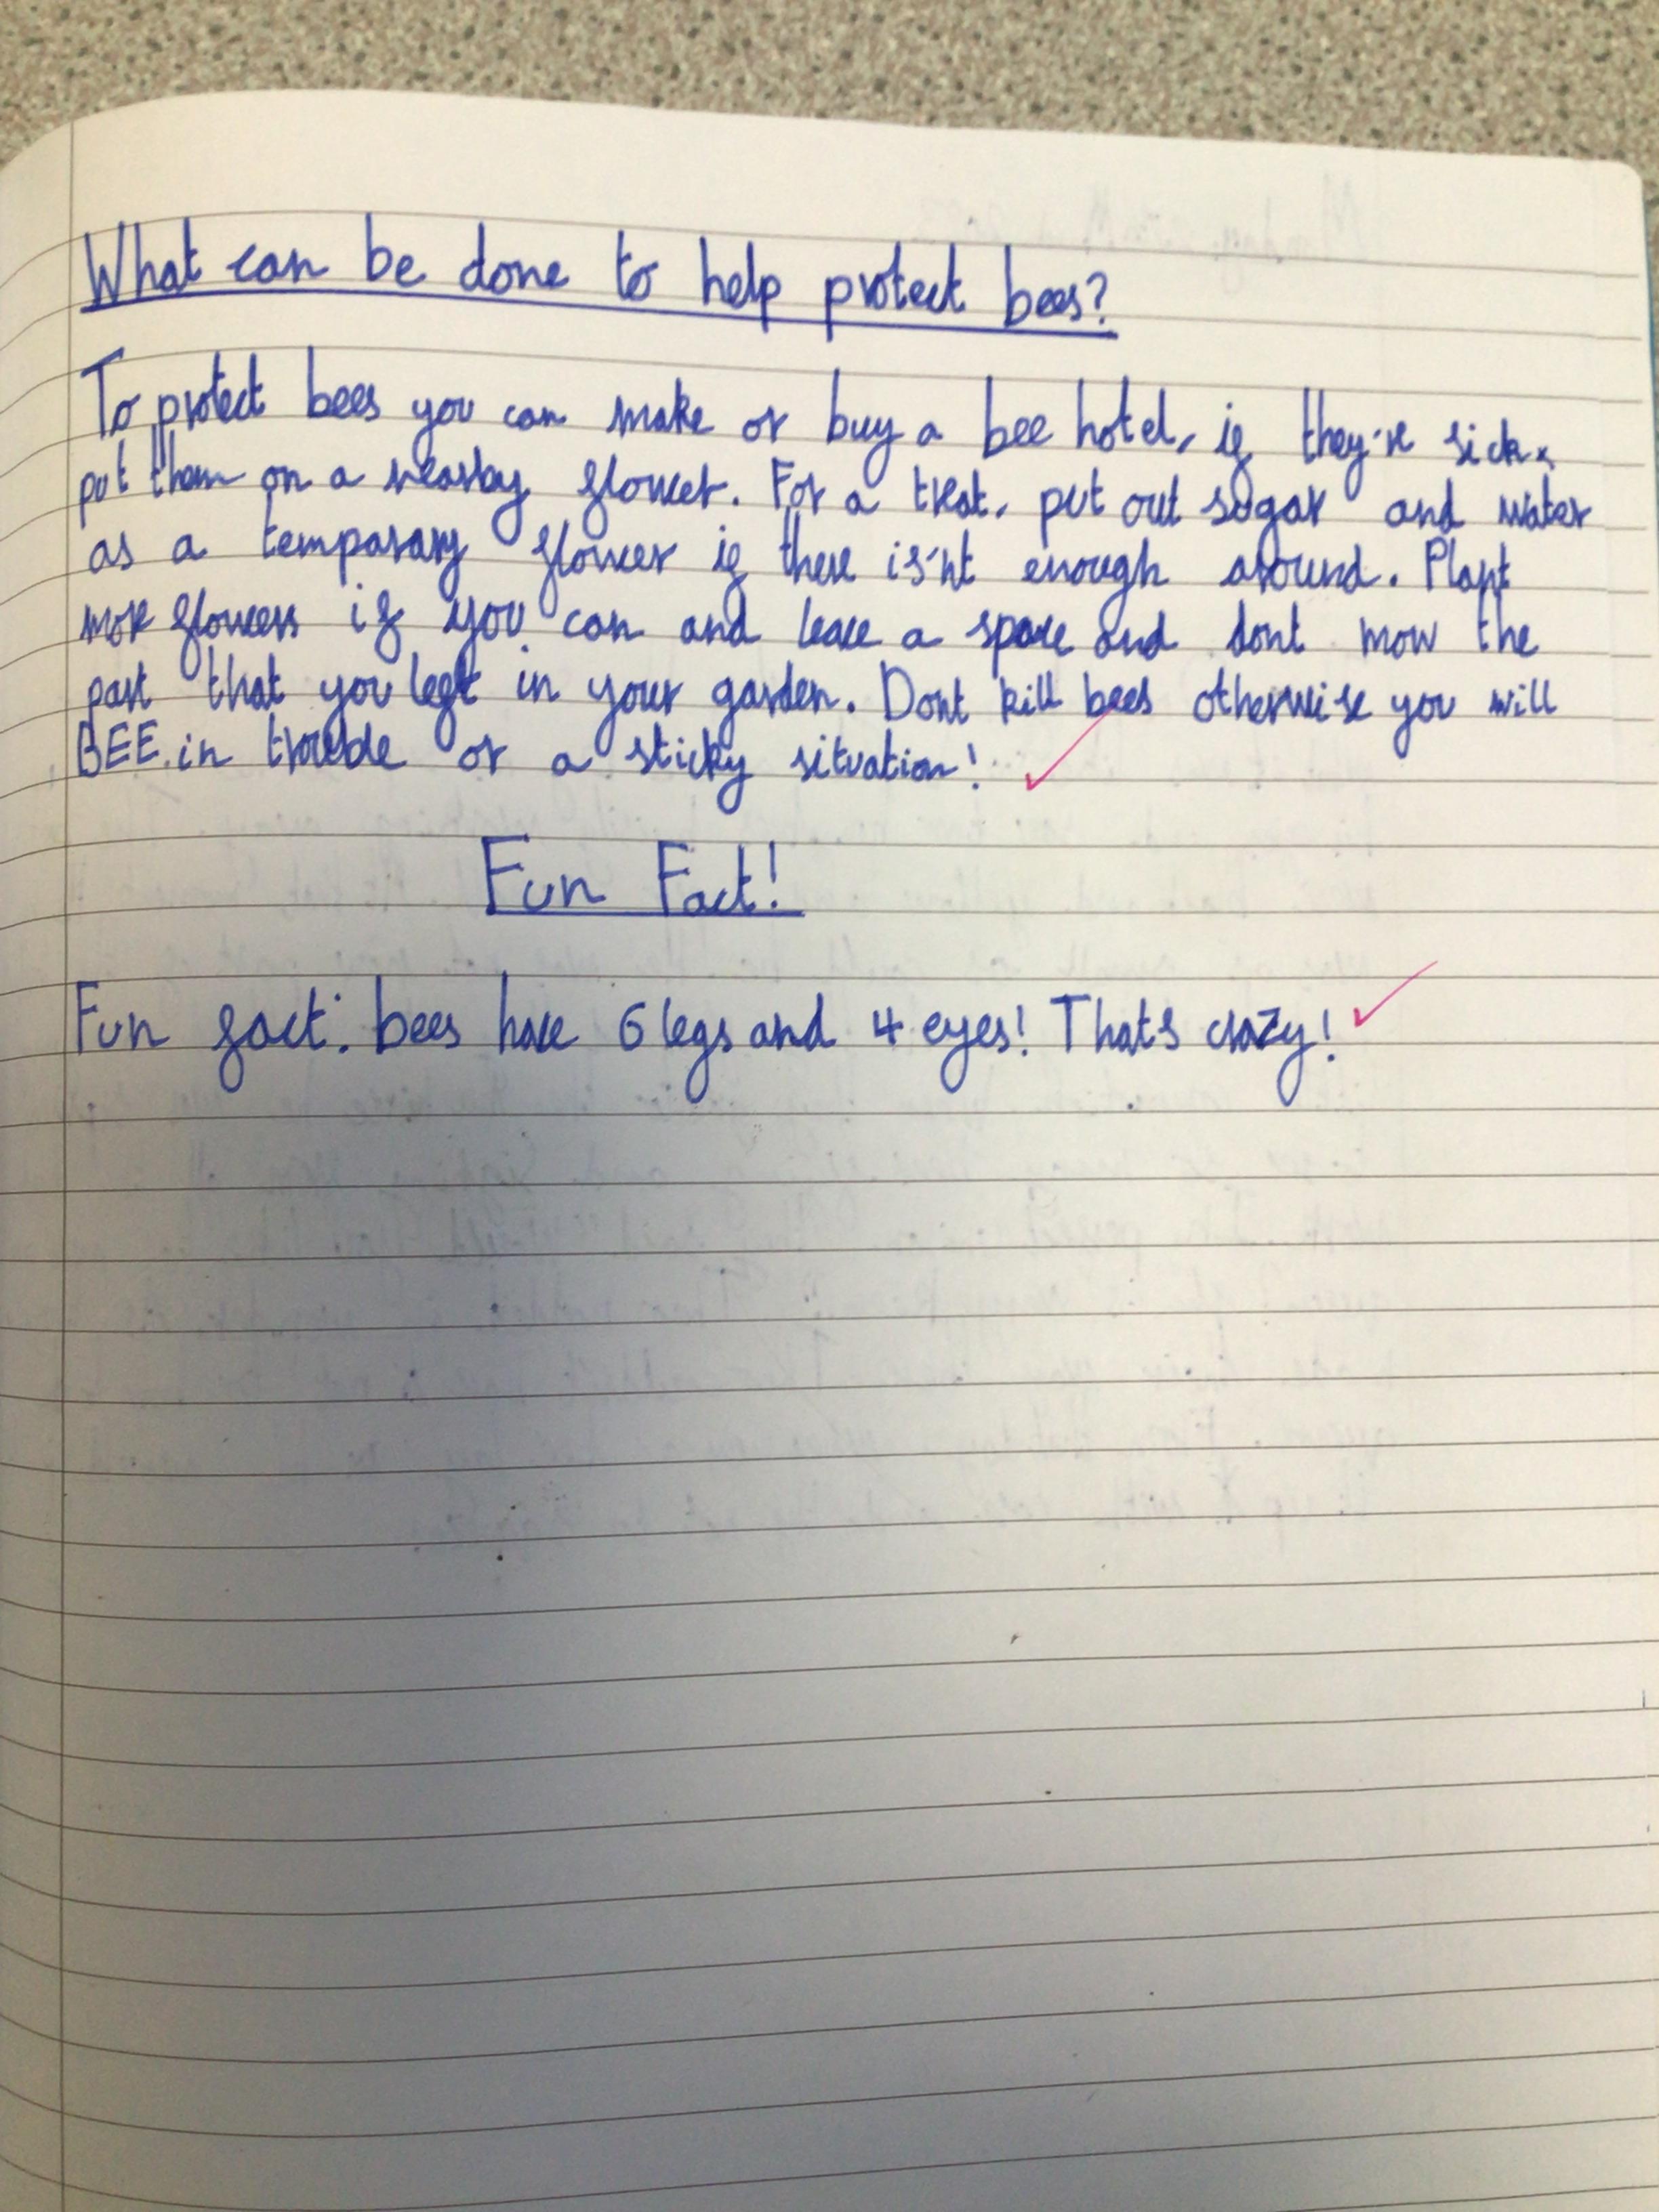 What can be done to help protect bees?
To protect bees you can make or buy a bee hotel, if they're sick,
put them on a nearby flower. For a treat, put out sugar and water
as a temparary flower if there is'nt enough around. Plant
more flowers if you can and leave a space and dont mow the
part that you left in your garden. Dont kill bees otherwise you will
BEE in trouble or a sticky situation!
Fun Fact!
Fun fact: bees have 6 legs and 4 eyes! That's crazy!